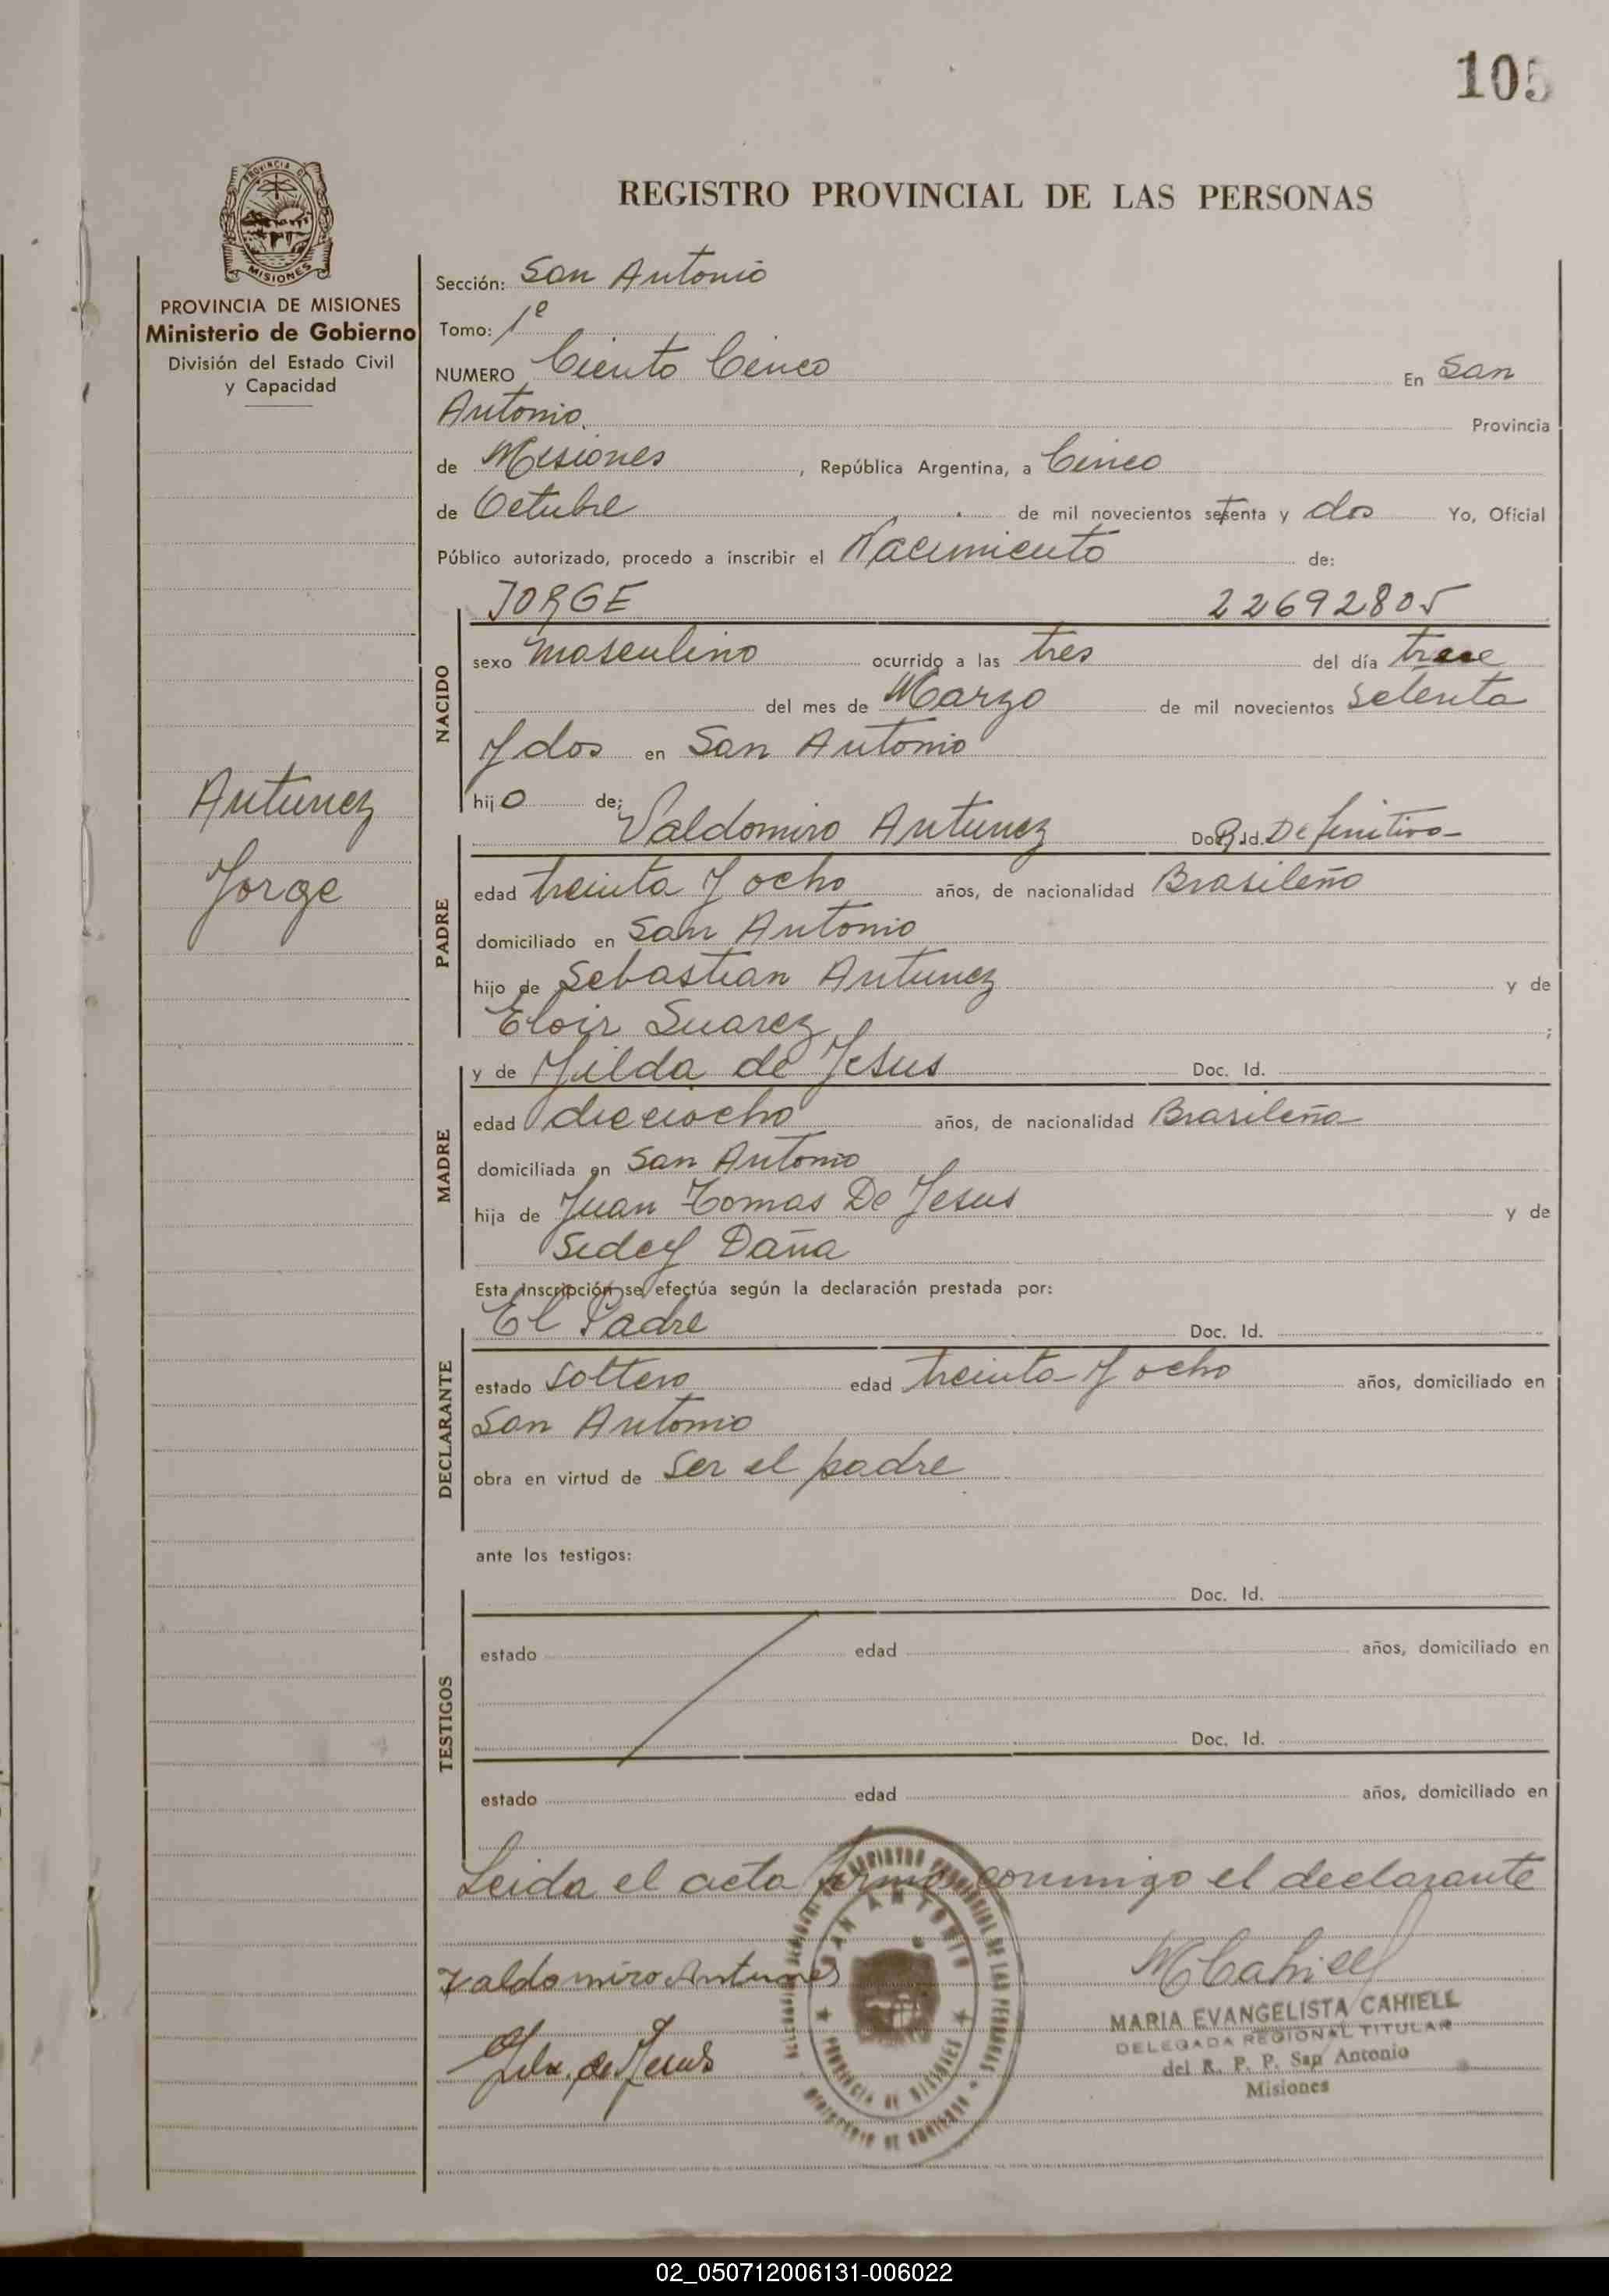 105
PROVINCIA DE MISIONES
PROVINCIA DE MISIONES
Ministerio de Gobierno
División del Estado Civil
y Capacidad
Antunez
Jorge
REGISTRO PROVINCIAL DE LAS PERSONAS
Sección: San Antonio
Tomo: 1º
NUMERO Ciento Cinco En San
Antonio. Provincia
de Misiones, República Argentina, a Cinco
de Octubre de mil novecientos setenta y dos Yo, Oficial
Público autorizado, procedo a inscribir el Nacimiento de:
JORGE 22692805
NACIDO
sexo masculino ocurrido a las tres del día trece
del mes de Marzo de mil novecientos setenta
y dos en San Antonio
hijo de:
Valdomiro Antunez Doc. Id. R. Definitiva
PADRE
edad treinta y ocho años, de nacionalidad Brasileño
domiciliado en San Antonio
hijo de Sebastian Antunez y de
Eloir Suarez;
y de Hilda de Jesus Doc. Id.
MADRE
edad dieciocho años, de nacionalidad Brasileña
domiciliada en San Antonio
hija de Juan Tomas De Jesus y de
Sedey Daña
Esta Inscripción se efectúa según la declaración prestada por:
El Padre Doc. Id.
DECLARANTE
estado soltero edad treinta y ocho años, domiciliado en
San Antonio
obra en virtud de ser el padre
ante los testigos:
Doc. Id.
TESTIGOS
estado edad años, domiciliado en
Doc. Id.
estado edad años, domiciliado en
Leida el acta firma conmigo el declarante
Valdomiro Antunes
de Jesus
REGISTRO PROVINCIAL DE LAS PERSONAS
SAN ANTONIO
PROVINCIA DE MISIONES
MINISTERIO DE GOBIERNO
MCahiell
MARIA EVANGELISTA CAHIELL
DELEGADA REGIONAL TITULAR
del R. P. P. San Antonio
Misiones
02_050712006131-006022